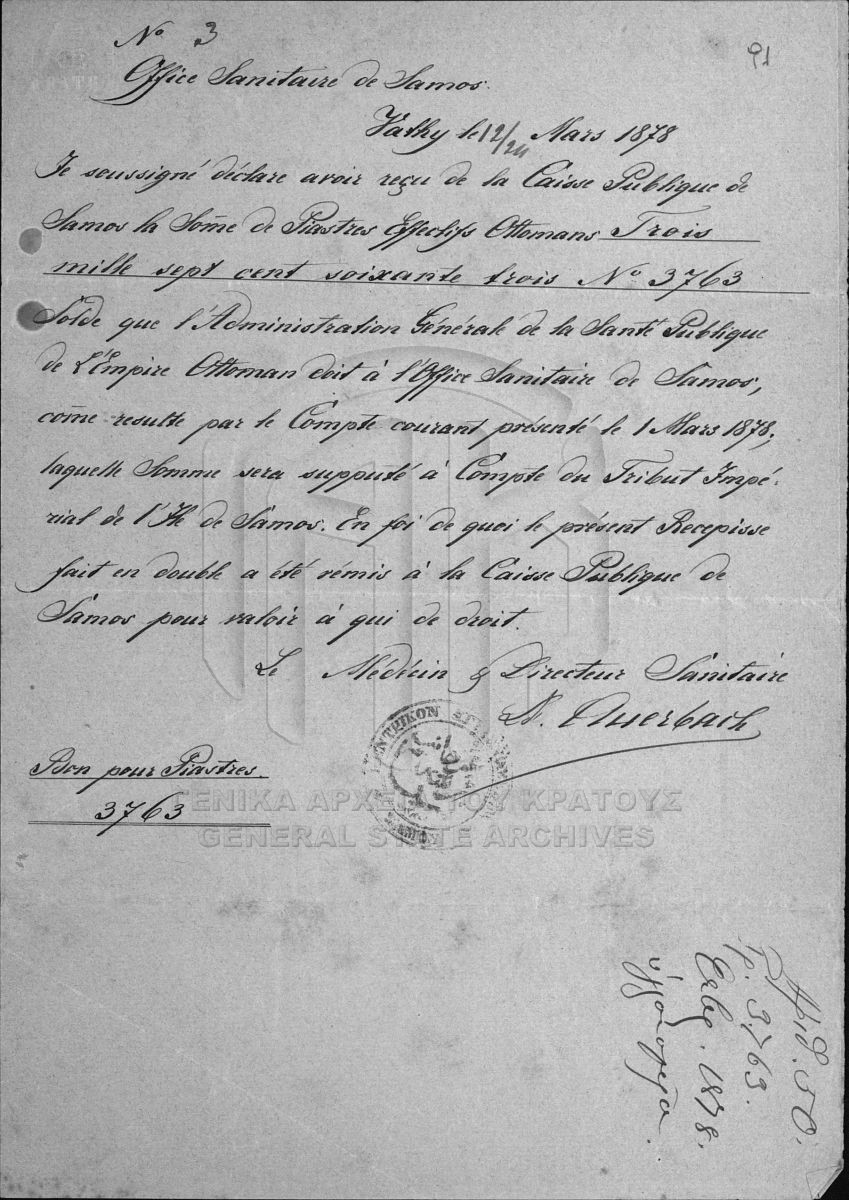 No 3
91
Office Sanitaire de Samos.
Vathy le 12/24 Mars 1878
Je soussigné déclare avoir reçu de la Caisse Publique de
Samos la Some de Piastres Effectifs Ottomans Trois
mille sept cent soixante trois No 3763
Solde que l'Administration Générale de la Santé Publique
de L'Empire Ottoman doit à l'Office Sanitaire de Samos,
come resulte par le Compte courant présenté le 1 Mars 1878,
laquelle Somme sera supputé à Compte du Tribut Impé-
rial de l'Ile de Samos. En foi de quoi le présent Recepisse
fait en double a été rémis à la Caisse Publique de
Samos pour valoir à qui de droit.
Le Médicin & Directeur Sanitaire
A. Auerbach
Bon pour Piastres.
3763
ΓΕΝΙΚΑ ΑΡΧΕΙΑ ΤΟΥ ΚΡΑΤΟΥΣ
GENERAL STATE ARCHIVES
Αριθ. 50.
Γρ. 3763.
1878.